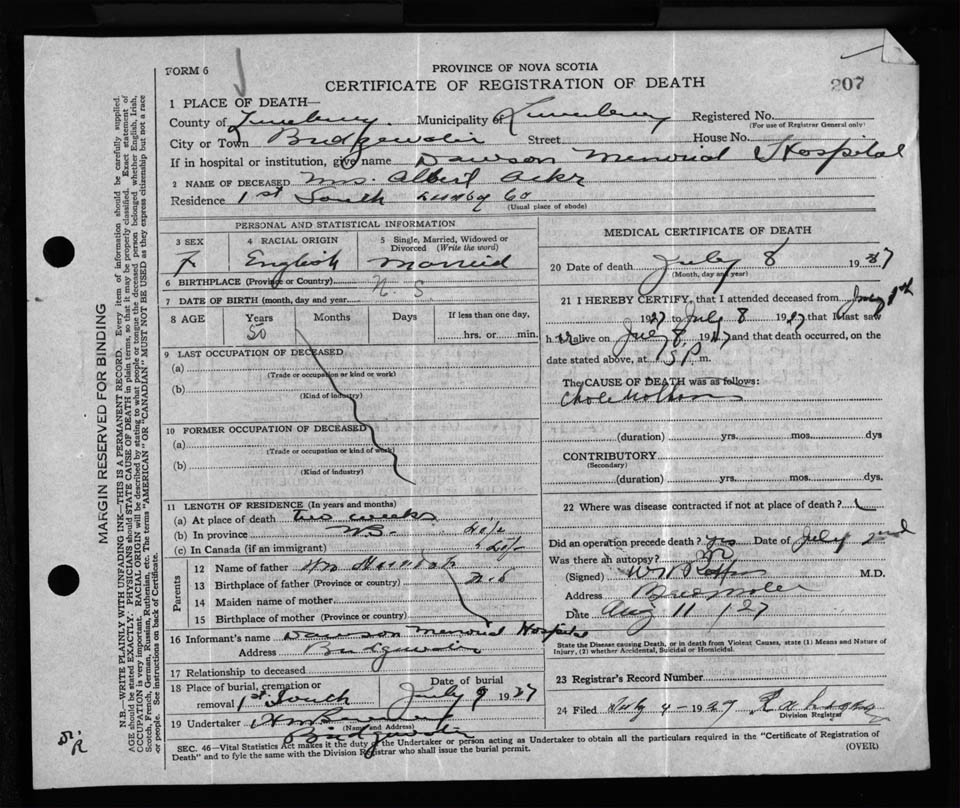 FORM 6
PROVINCE OF NOVA SCOTIA
CERTIFICATE OF REGISTRATION OF DEATH
207
1 PLACE OF DEATH—
County of Lunenburg Municipality of Lunenburg Registered No.
(For use of Registrar General only)
City or Town Bridgewater Street House No.
If in hospital or institution, give name Dawson Memorial Hospital
2 NAME OF DECEASED Mrs. Albert
Residence 1st South Co
(Usual place of abode)
PERSONAL AND STATISTICAL INFORMATION
3 SEX 4 RACIAL ORIGIN 5 Single, Married, Widowed or Divorced (Write the word)
F English Married
6 BIRTHPLACE (Province or Country) N. S.
7 DATE OF BIRTH (month, day and year)
8 AGE Years Months Days If less than one day,
50 hrs. or min.
9 LAST OCCUPATION OF DECEASED
(a)
(Trade or occupation or kind or work)
(b)
(Kind of industry)
10 FORMER OCCUPATION OF DECEASED
(a)
(Trade or occupation or kind of work)
(b)
(Kind of industry)
11 LENGTH OF RESIDENCE (In years and months)
(a) At place of death two weeks
(b) In province life
(c) In Canada (if an immigrant)
Parents
12 Name of father Wm
13 Birthplace of father (Province or country) N.S
14 Maiden name of mother
15 Birthplace of mother (Province or country)
16 Informant's name Dawson Memorial Hospital
Address Bridgewater
17 Relationship to deceased
18 Place of burial, cremation or removal 1st South July 9 1927
19 Undertaker
(Name and Address)
Bridgewater
MEDICAL CERTIFICATE OF DEATH
20 Date of death July 8 1927
(Month, day and year)
21 I HEREBY CERTIFY, that I attended deceased from
1927 to July 8 1927 that I last saw
h er alive on July 8 1927, and that death occurred, on the
date stated above, at m.
The CAUSE OF DEATH was as follows:
(duration) yrs. mos. dys
CONTRIBUTORY
(Secondary)
(duration) yrs. mos. dys
22 Where was disease contracted if not at place of death?
Did an operation precede death? yes Date of July 2nd
Was there an autopsy?
(Signed) M.D.
Address Bridgewater
Date Aug 11 / 27
State the Disease causing Death, or in death from Violent Causes, state (1) Means and Nature of
Injury, (2) whether Accidental, Suicidal or Homicidal.
23 Registrar's Record Number
24 Filed 1927
Division Registrar
SEC. 46—Vital Statistics Act makes it the duty of the Undertaker or person acting as Undertaker to obtain all the particulars required in the "Certificate of Registration of
Death" and to fyle the same with the Division Registrar who shall issue the burial permit.
(OVER)
MARGIN RESERVED FOR BINDING
N.B.—WRITE PLAINLY WITH UNFADING INK—THIS IS A PERMANENT RECORD. Every item of information should be carefully supplied.
AGE should be stated EXACTLY. PHYSICIANS should STATE CAUSE OF DEATH in plain terms, so that it may be properly classified. Exact statement of
OCCUPATION is very important. RACIAL ORIGIN will be described by stating to what people or tongue the deceased person belonged whether English, Irish,
Scotch, French, German, Russian, Ruthenian, etc. The terms "AMERICAN" OR "CANADIAN" MUST NOT BE USED as they express citizenship but not a race
or people. See instructions on back of Certificate.